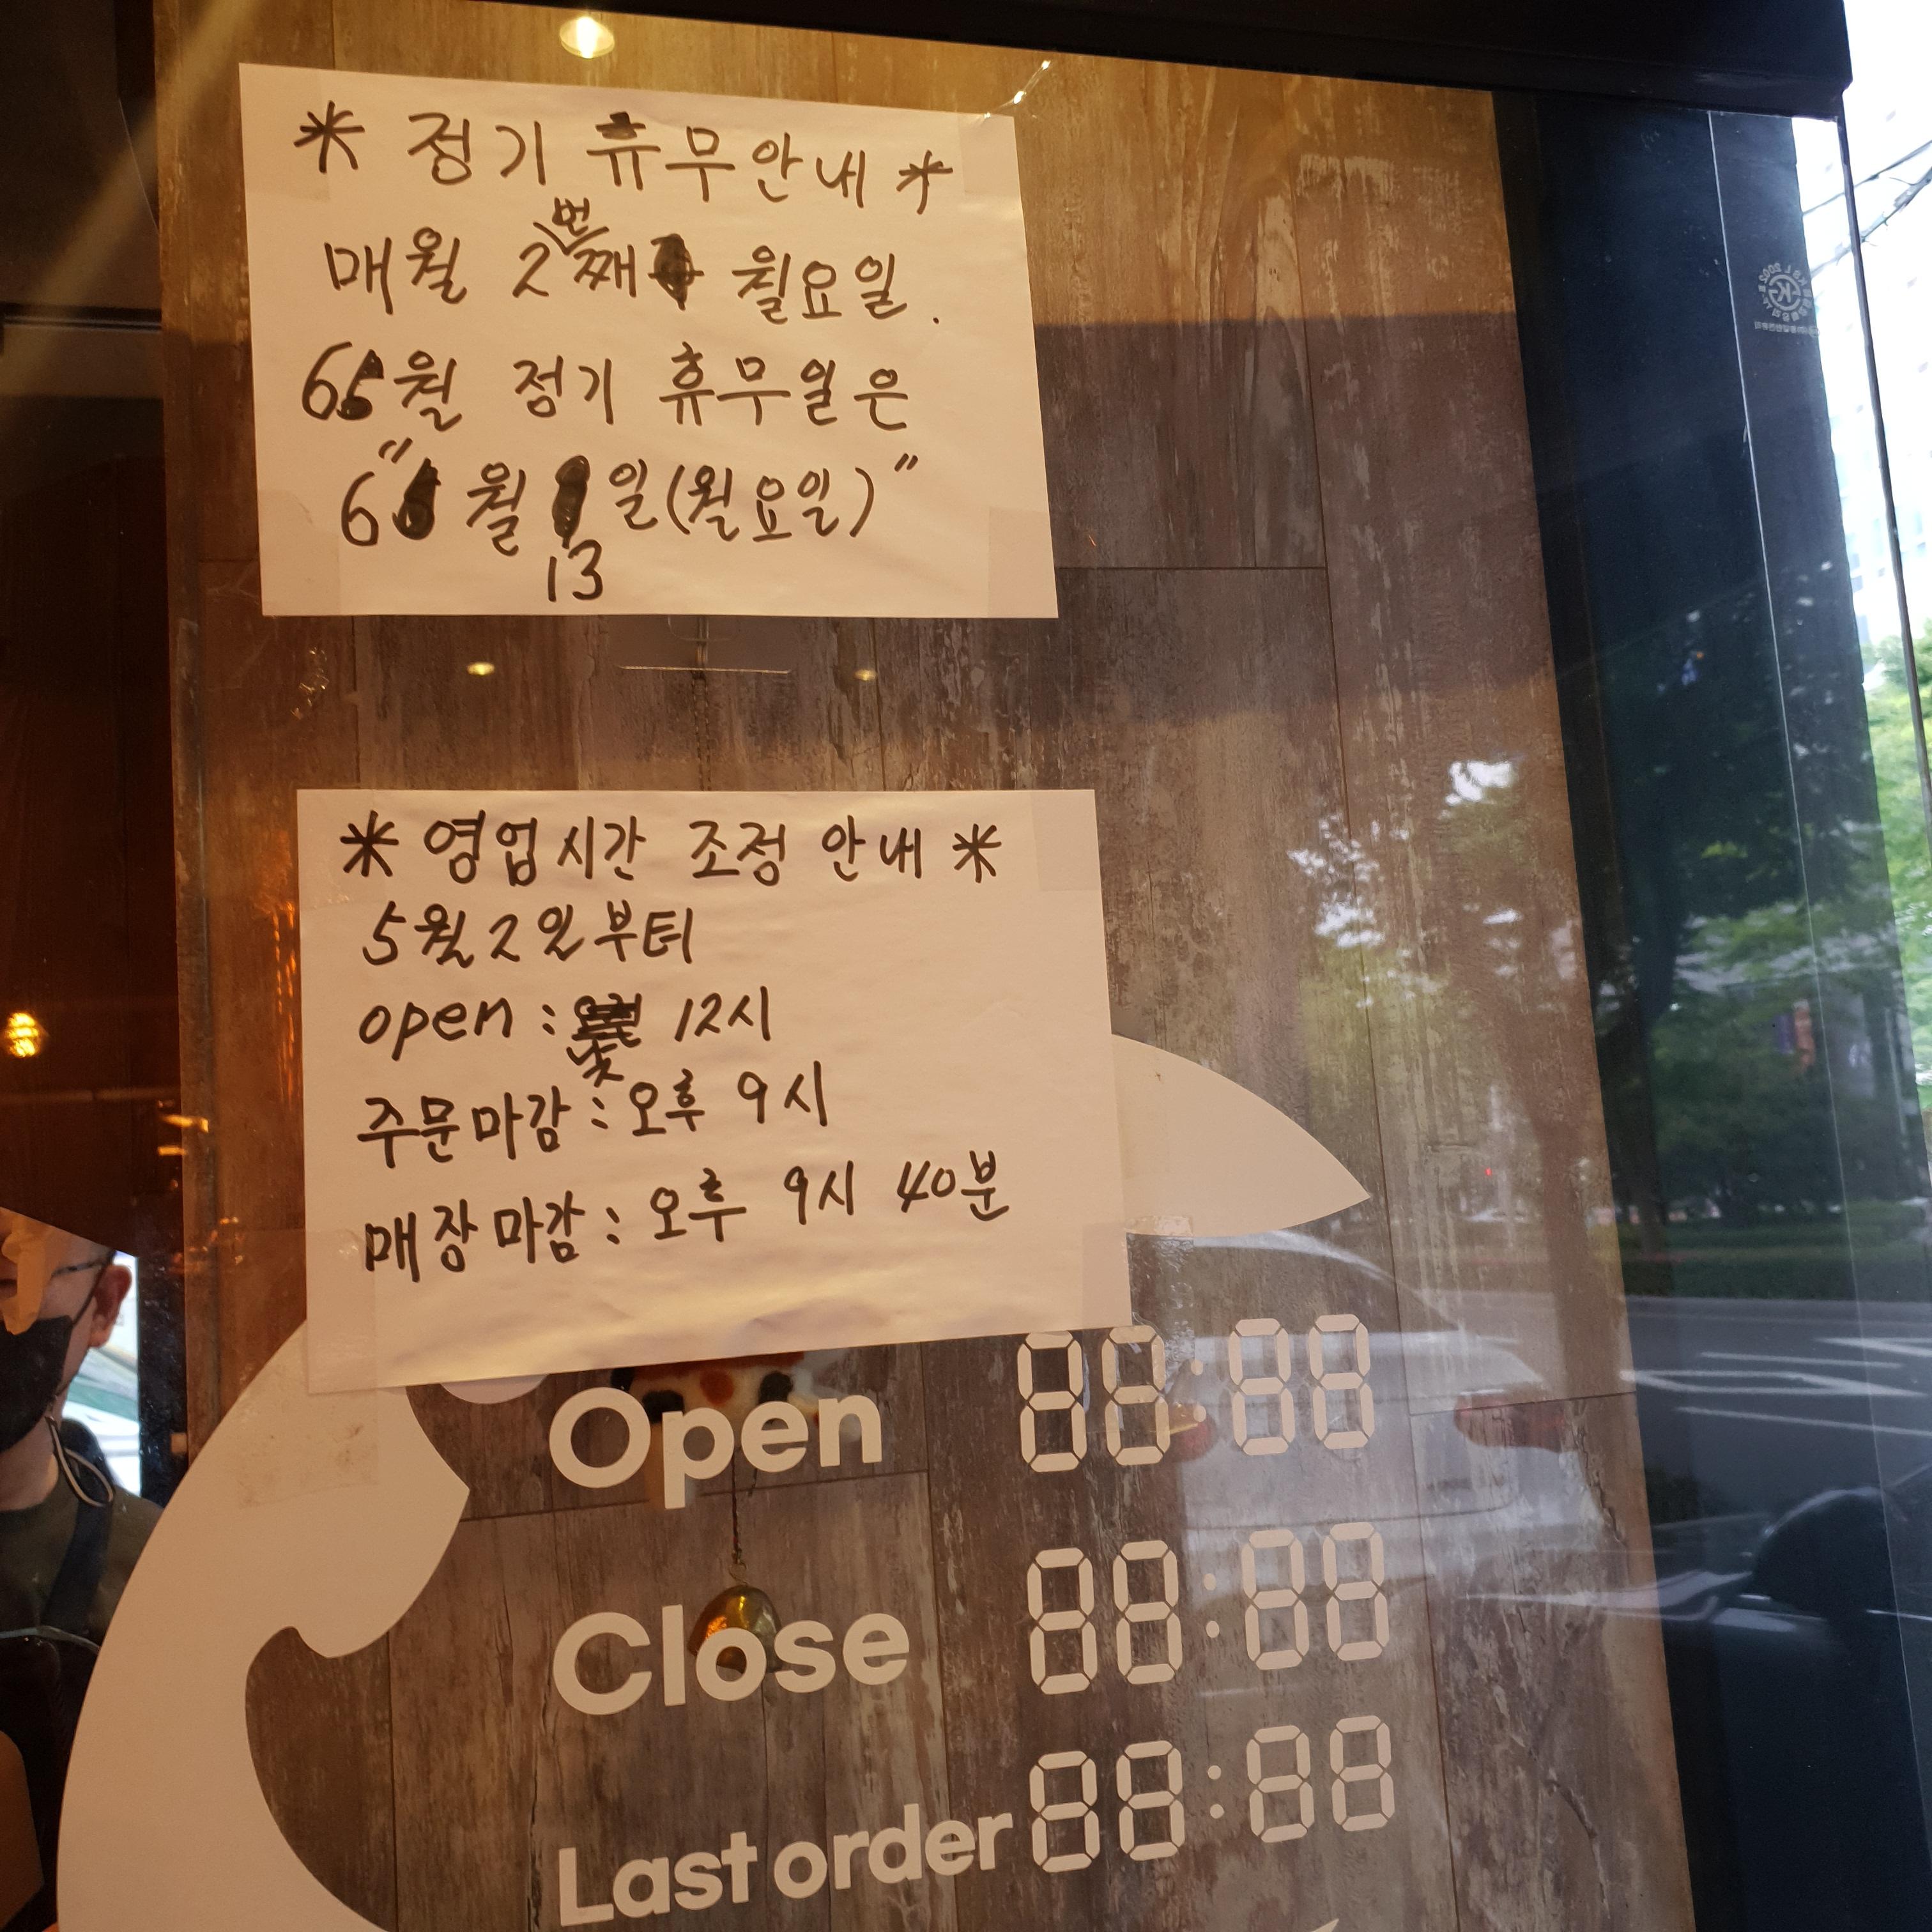 * 정기 휴무안내 *
매월 2번째 월요일.
6월 정기 휴무일은
"6월 13일(월요일)"
* 영업시간 조정 안내 *
5월 2일부터
open : 12시
주문마감 : 오후 9시
매장마감 : 오후 9시 40분
Open 88:88
Close 88:88
Last order 88:88